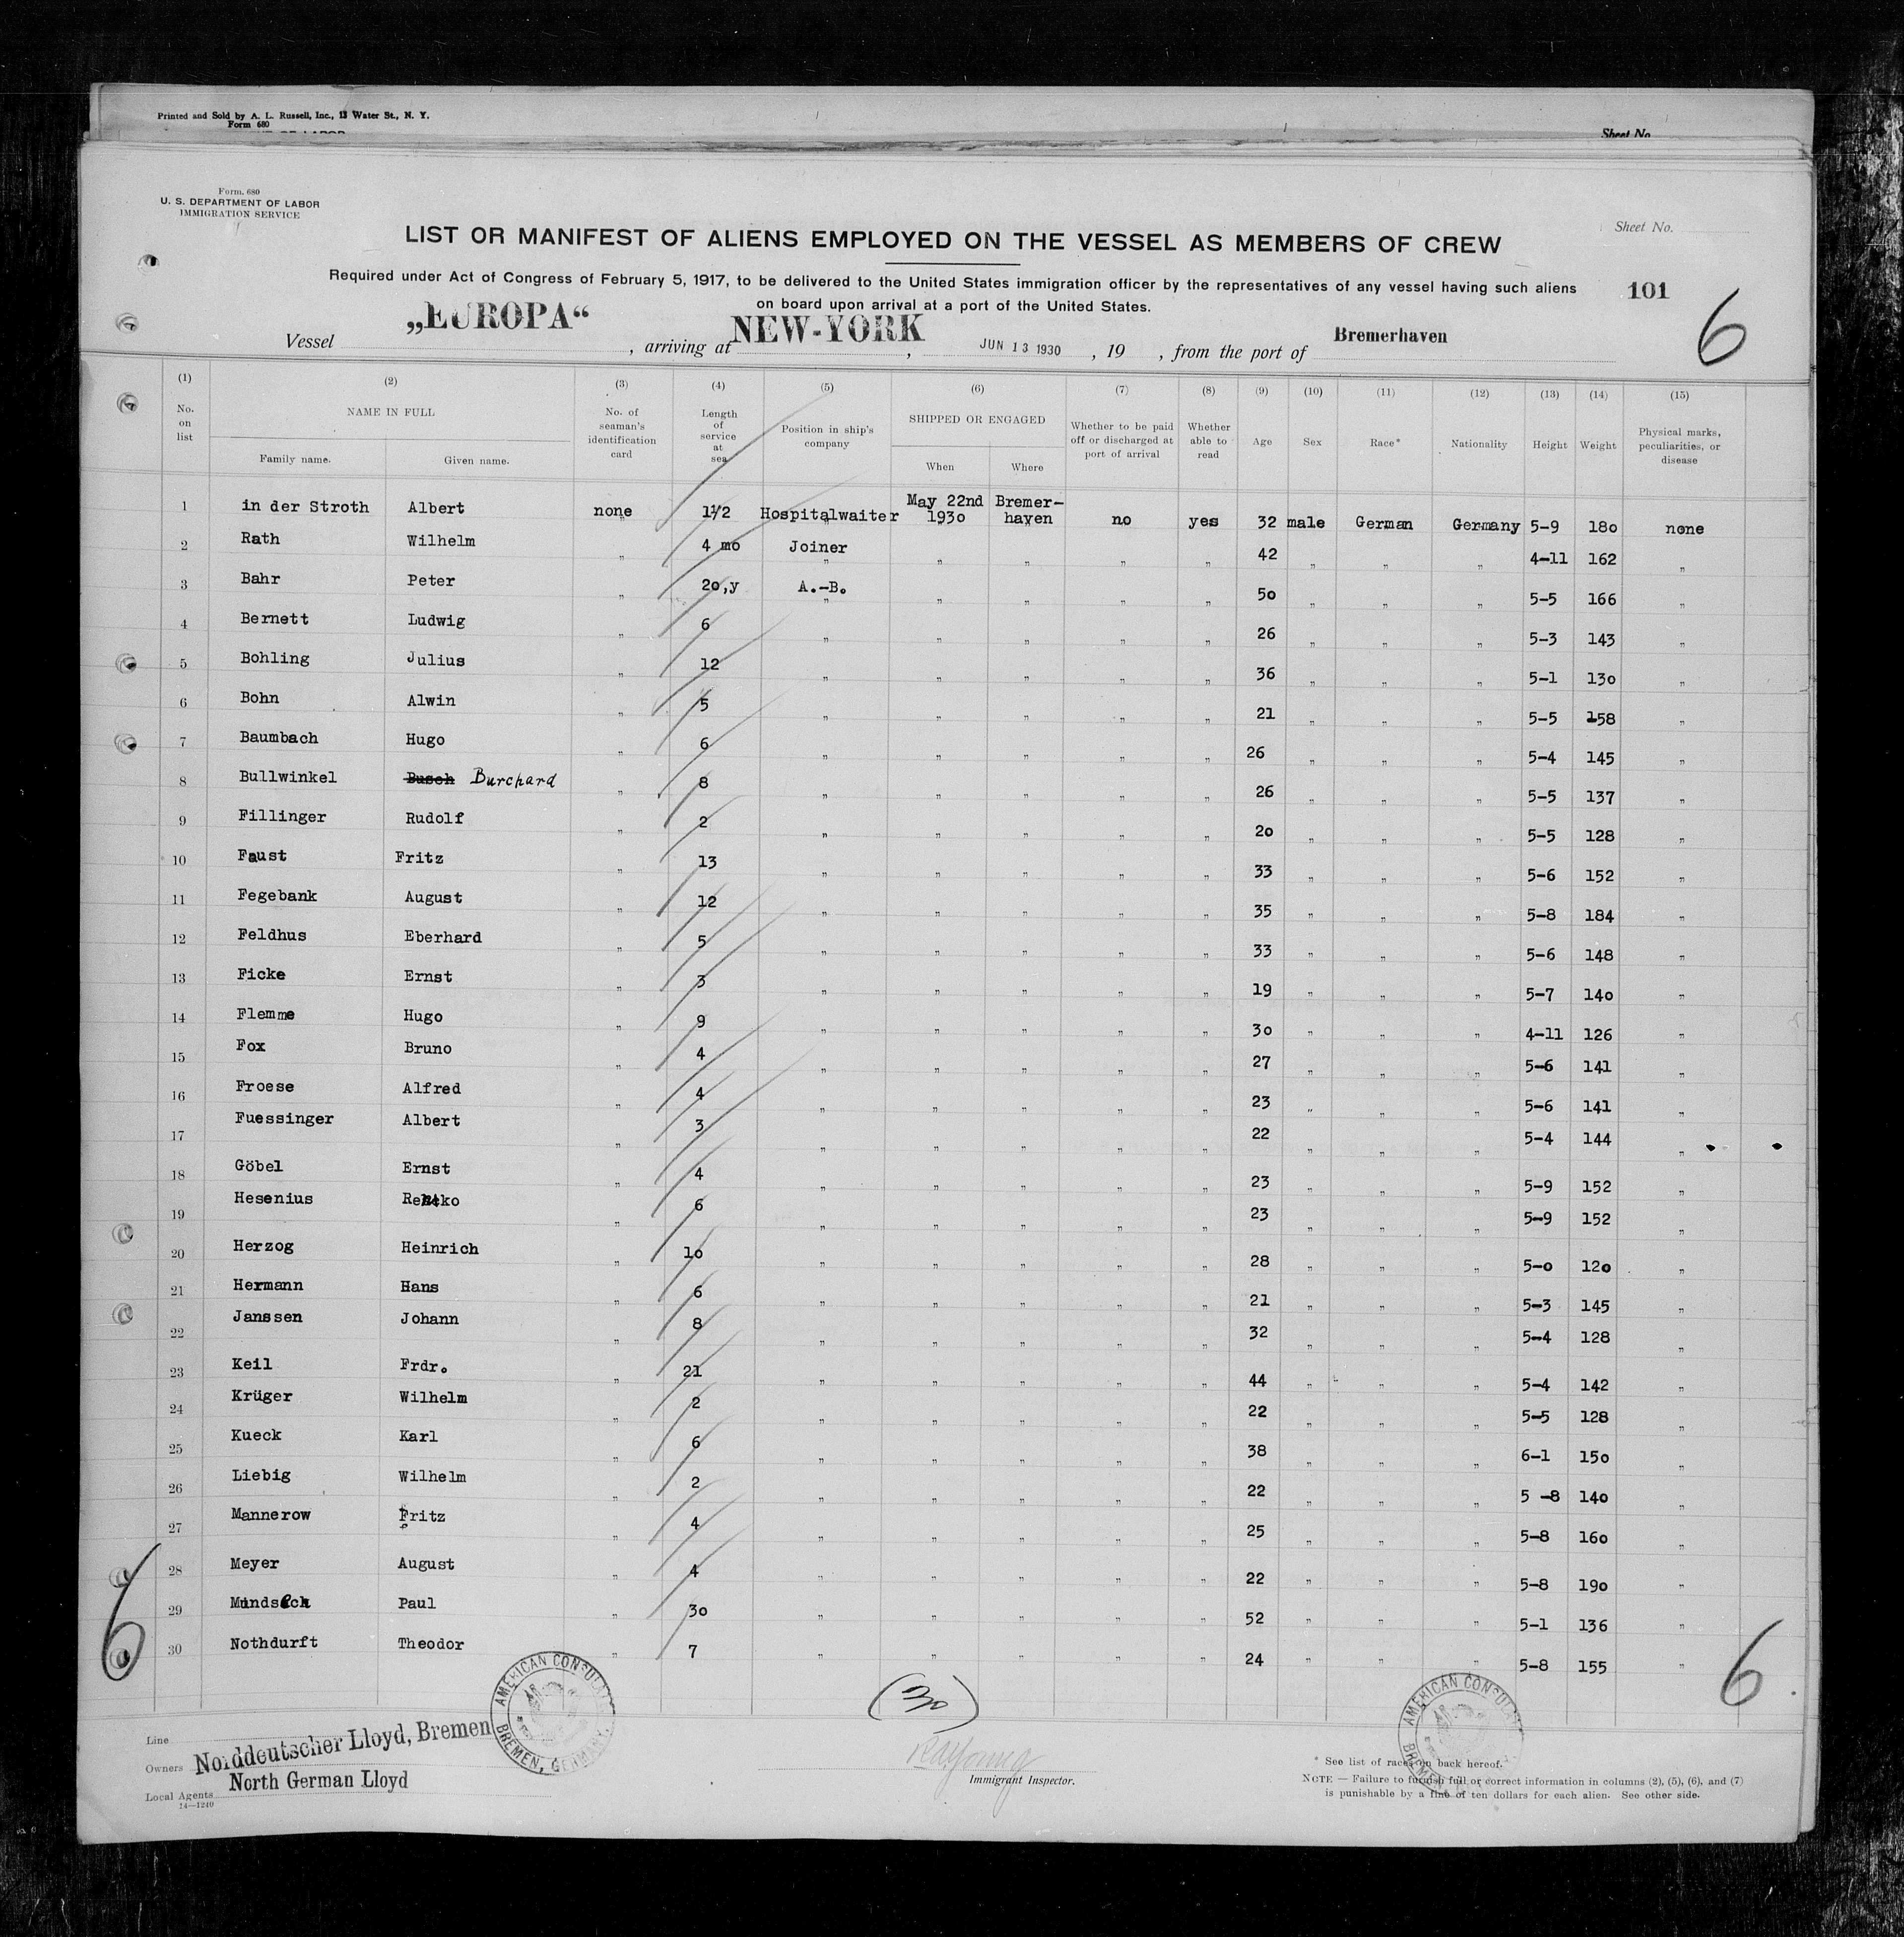 Printed and Sold by A. L. Russell, Inc., 13 Water St., N. Y.
Form 680
Sheet No.
Form. 680
U. S. DEPARTMENT OF LABOR
IMMIGRATION SERVICE
Sheet No.
LIST OR MANIFEST OF ALIENS EMPLOYED ON THE VESSEL AS MEMBERS OF CREW
Required under Act of Congress of February 5, 1917, to be delivered to the United States immigration officer by the representatives of any vessel having such aliens
on board upon arrival at a port of the United States.
101
6
Vessel „EUROPA“ , arriving at NEW-YORK , JUN 13 1930 , 19 , from the port of Bremerhaven
(1) (2) (3) (4) (5) (6) (7) (8) (9) (10) (11) (12) (13) (14) (15)
No. on list
NAME IN FULL
Family name.
Given name.
No. of seaman's identification card
Length of service at sea
Position in ship's company
SHIPPED OR ENGAGED
When
Where
Whether to be paid off or discharged at port of arrival
Whether able to read
Age
Sex
Race*
Nationality
Height
Weight
Physical marks, peculiarities, or disease
1 in der Stroth Albert none 1½ Hospitalwaiter May 22nd 1930 Bremerhaven no yes 32 male German Germany 5-9 180 none
2 Rath Wilhelm „ 4 mo Joiner „ „ „ „ 42 „ „ „ 4-11 162 „
3 Bahr Peter „ 20,y A.-B. „ „ „ „ 50 „ „ „ 5-5 166 „
4 Bernett Ludwig „ 6 „ „ „ „ „ 26 „ „ „ 5-3 143 „
5 Bohling Julius „ 12 „ „ „ „ „ 36 „ „ „ 5-1 130 „
6 Bohn Alwin „ 5 „ „ „ „ „ 21 „ „ „ 5-5 158 „
7 Baumbach Hugo „ 6 „ „ „ „ „ 26 „ „ „ 5-4 145 „
8 Bullwinkel Busch Burchard „ 8 „ „ „ „ „ 26 „ „ „ 5-5 137 „
9 Fillinger Rudolf „ 2 „ „ „ „ „ 20 „ „ „ 5-5 128 „
10 Faust Fritz „ 13 „ „ „ „ „ 33 „ „ „ 5-6 152 „
11 Fegebank August „ 12 „ „ „ „ „ 35 „ „ „ 5-8 184 „
12 Feldhus Eberhard „ 5 „ „ „ „ „ 33 „ „ „ 5-6 148 „
13 Ficke Ernst „ 3 „ „ „ „ „ 19 „ „ „ 5-7 140 „
14 Flemme Hugo „ 9 „ „ „ „ „ 30 „ „ „ 4-11 126 „
15 Fox Bruno „ 4 „ „ „ „ „ 27 „ „ „ 5-6 141 „
16 Froese Alfred „ 4 „ „ „ „ „ 23 „ „ „ 5-6 141 „
17 Fuessinger Albert „ 3 „ „ „ „ „ 22 „ „ „ 5-4 144 „
18 Göbel Ernst „ 4 „ „ „ „ „ 23 „ „ „ 5-9 152 „
19 Hesenius „ 6 „ „ „ „ „ 23 „ „ „ 5-9 152 „
20 Herzog Heinrich „ 10 „ „ „ „ „ 28 „ „ „ 5-0 120 „
21 Hermann Hans „ 6 „ „ „ „ „ 21 „ „ „ 5-3 145 „
22 Janssen Johann „ 8 „ „ „ „ „ 32 „ „ „ 5-4 128 „
23 Keil Frdr. „ 21 „ „ „ „ „ 44 „ „ „ 5-4 142 „
24 Krüger Wilhelm „ 2 „ „ „ „ „ 22 „ „ „ 5-5 128 „
25 Kueck Karl „ 6 „ „ „ „ „ 38 „ „ „ 6-1 150 „
26 Liebig Wilhelm „ 2 „ „ „ „ „ 22 „ „ „ 5 -8 140 „
27 Mannerow Fritz „ 4 „ „ „ „ „ 25 „ „ „ 5-8 160 „
28 Meyer August „ 4 „ „ „ „ „ 22 „ „ „ 5-8 190 „
29 Paul „ 30 „ „ „ „ „ 52 „ „ „ 5-1 136 „
30 Nothdurft Theodor „ 7 „ „ „ „ „ 24 „ „ „ 5-8 155 „
6
6
(30)
AMERICAN CONSULATE
BREMEN, GERMANY.
AMERICAN CONSULATE
Line
Owners Norddeutscher Lloyd, Bremen
North German Lloyd
Local Agents
14—1240
Immigrant Inspector.
* See list of races on back hereof.
NOTE — Failure to furnish full or correct information in columns (2), (5), (6), and (7)
is punishable by a fine of ten dollars for each alien. See other side.